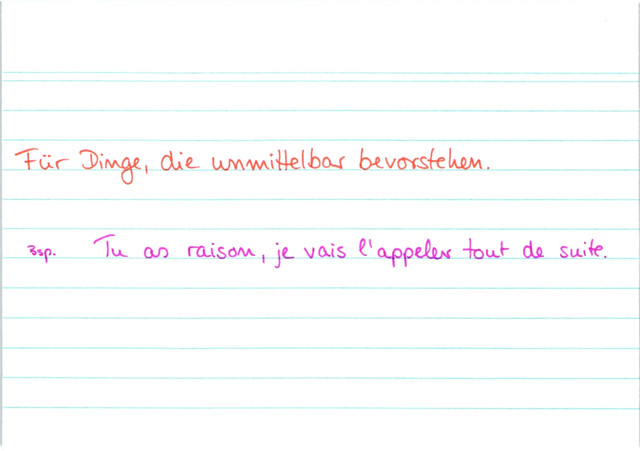 Für Dinge, die unmittelbar bevorstehen.
Bsp. Tu as raison, je vais l'appeler tout de suite.